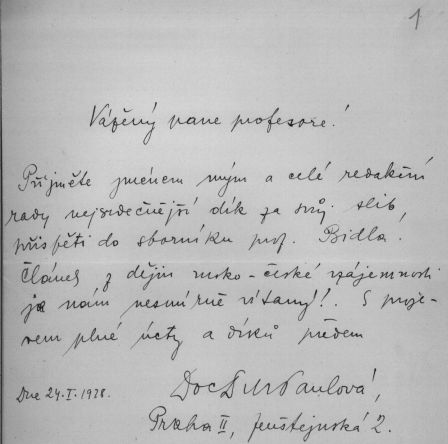 1
Vážený pane profesore!
Přijměte jménem mým a celé redakční
rady nejsrdečnější dík za svůj slib,
přispěti do sborníku prof. Bidla.
Článek z dějin rusko-české vzájemnosti
je nám nesmírně vítaný!. S proje-
vem plné úcty a díků předem
Doc Paulová,
Dne 24.I.1928.
Praha II, 2.